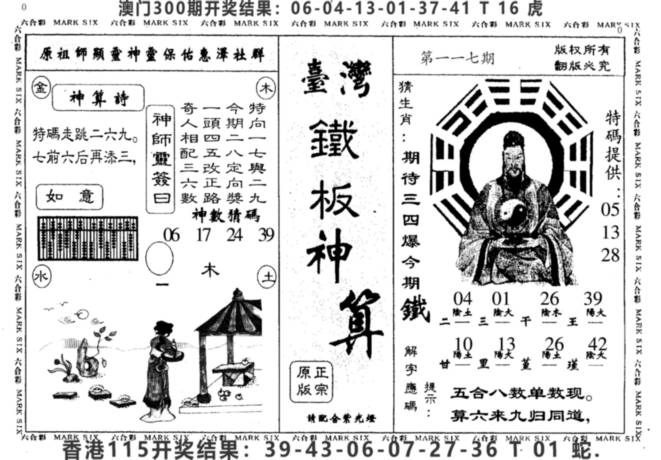 澳门300期开奖结果：06-04-13-01-37-41 T 16 虎
六合彩 MARK SIX 六合彩 MARK SIX 六合彩 MARK SIX 六合彩 MARK SIX 六合彩 MARK SIX
原祖師顯靈神靈保佑惠澤社群
金
木
神算詩
特碼走跳二六九。
七前六后再添三，
如意
神師靈簽曰
特向一七與二九
今期二八定向獎
一頭四五改正路
奇人相配三六數
神數猜碼
06 17 24 39
水
木
土
一
臺灣
鐵板神算
正宗
原版
請配合紫光燈
第一一七期
版权所有
翻版必究
猜生肖：期待三四爆今期鐵
特碼提供：05 13 28
04 01 26 39
陰土 陰火 陰木 陽火
二 三 干 王
10 13 26 42
陽土 陽火 陽土 陰火
甘 里 堇 瑾
解字應碼
提示：
五合八数单数现。
算六来九归同道，
六合彩 MARK SIX 六合彩 MARK SIX 六合彩 MARK SIX 六合彩 MARK SIX 六合彩 MARK SIX
香港115开奖结果：39-43-06-07-27-36 T 01 蛇.